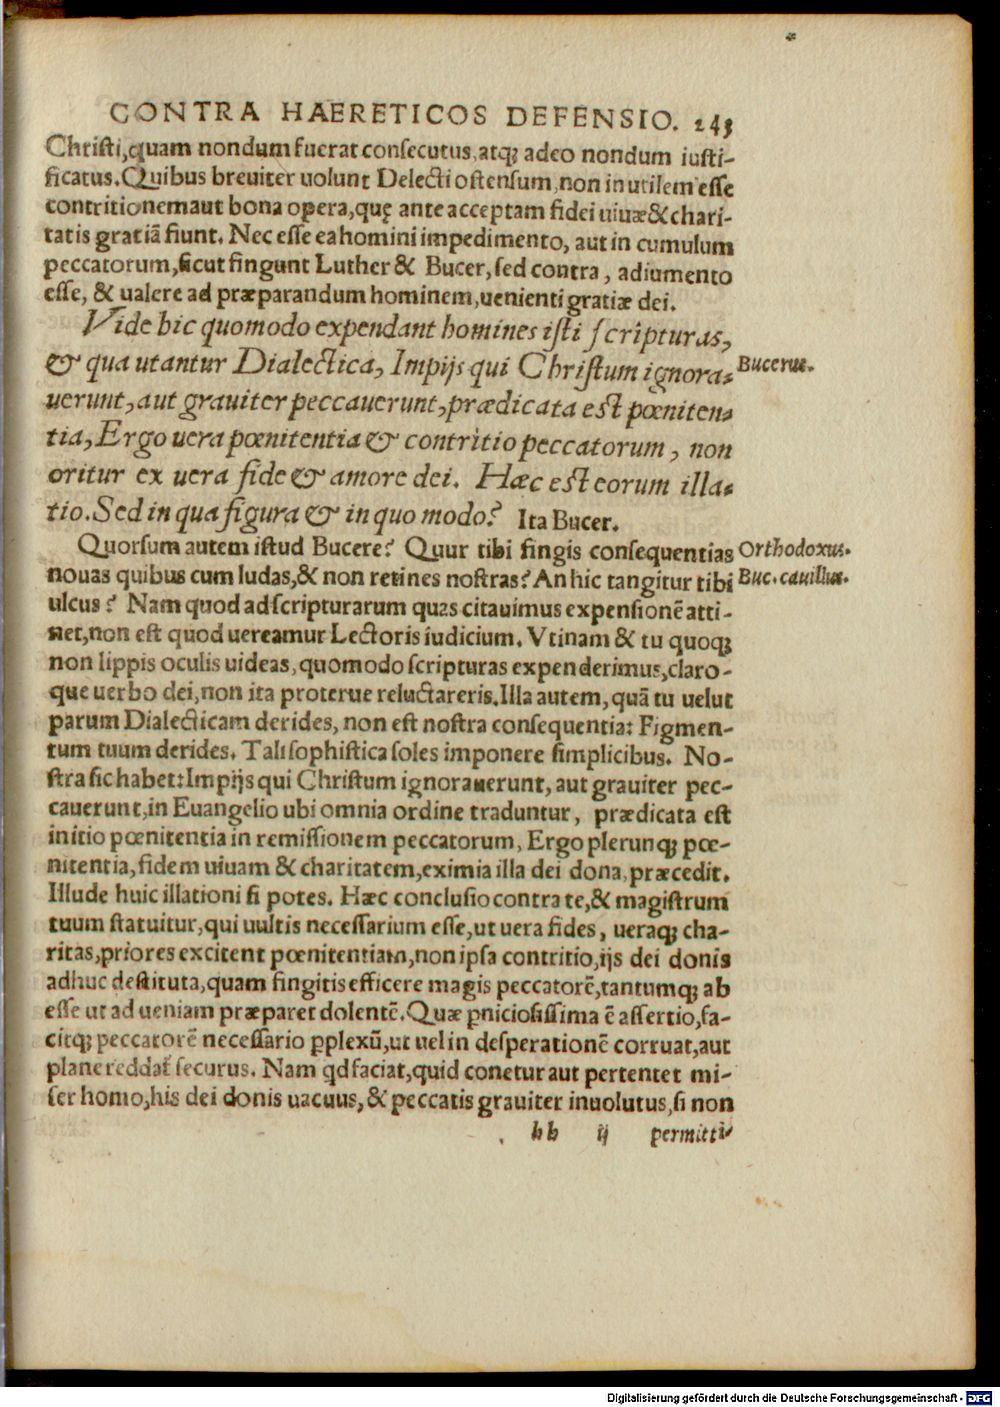 CONTRA HAERETICOS DEFENSIO. 243
Christi,quam nondum fuerat consecutus,atq; adeo nondum iusti-
ficatus. Quibus breuiter uolunt Delecti ostensum,non inutilem esse
contritionem aut bona opera,quę ante acceptam fidei uiuæ & chari-
tatis gratiã fiunt. Nec esse ea homini impedimento, aut in cumulum
peccatorum,sicut fingunt Luther & Bucer, sed contra, adiumento
esse, & ualere ad præparandum hominem,uenienti gratiæ dei.
Vide hic quomodo expendant homines isti scripturas,
& qua utantur Dialectica, Impijs qui Christum ignora- Bucerus.
uerunt,aut grauiter peccauerunt,prædicata est pœniten-
tia,Ergo uera pœnitentia & contritio peccatorum, non
oritur ex uera fide & amore dei. Hæc est eorum illa-
tio. Sed in qua figura & in quo modo? Ita Bucer.
Quorsum autem istud Bucere? Quur tibi fingis consequentias Orthodoxus.
nouas quibus cum ludas,& non retines nostras? An hic tangitur tibi Buc. cauillus.
ulcus? Nam quod ad scripturarum quas citauimus expensionẽ atti-
net,non est quod uereamur Lectoris iudicium. Vtinam & tu quoq;
non lippis oculis uideas, quomodo scripturas expenderimus,claro-
que uerbo dei,non ita proterue reluctareris. Illa autem, quã tu uelut
parum Dialecticam derides, non est nostra consequentia: Figmen-
tum tuum derides. Tali sophistica soles imponere simplicibus. No-
stra sic habet: Impijs qui Christum ignorauerunt, aut grauiter pec-
cauerunt,in Euangelio ubi omnia ordine traduntur, prædicata est
initio pœnitentia in remissionem peccatorum, Ergo plerunq; pœ-
nitentia, fidem uiuam & charitatem,eximia illa dei dona,præcedit.
Illude huic illationi si potes. Hæc conclusio contra te,& magistrum
tuum statuitur,qui uultis necessarium esse,ut uera fides, ueraq; cha-
ritas,priores excitent pœnitentiam,non ipsa contritio,ijs dei donis
adhuc destituta,quam fingitis efficere magis peccatorẽ,tantumq; ab
esse ut ad ueniam præparet dolentẽ. Quæ ꝑniciosissima ẽ assertio,fa-
citq; peccatorẽ necessario ꝑplexũ,ut uel in desperationẽ corruat,aut
plane reddat̃ securus. Nam qd faciat,quid conetur aut pertentet mi-
ser homo,his dei donis uacuus, & peccatis grauiter inuolutus,si non
hh ij permitti
Digitalisierung gefördert durch die Deutsche Forschungsgemeinschaft - DFG